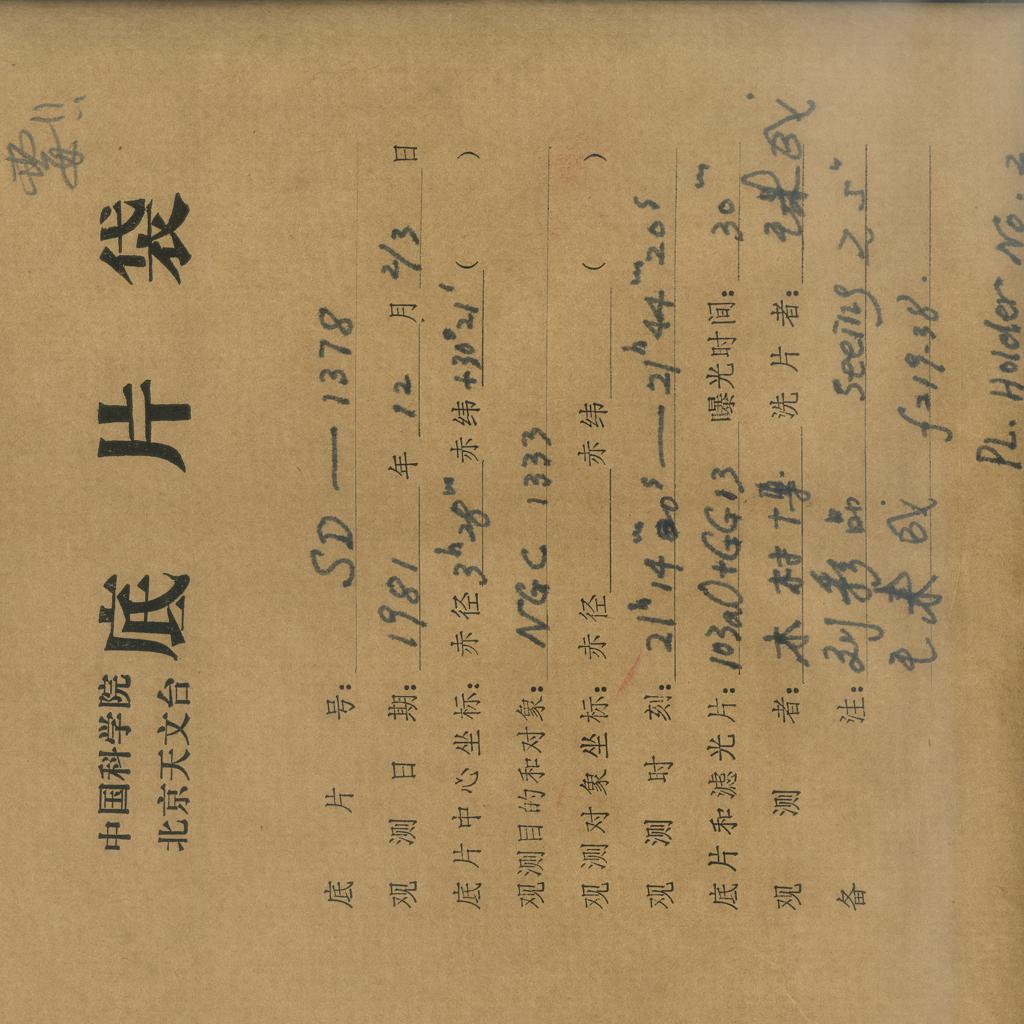 中国科学院
北京天文台
底片袋
底片号: SD — 1378
观测日期: 1981 年 12 月 2/3 日
底片中心坐标: 赤径 3h28m 赤纬 +30°21′ ( )
观测目的和对象: NGC 1333
观测对象坐标: 赤径 赤纬 ( )
观测时刻: 21h14m20s — 21h44m20s
底片和滤光片: 103aO+GG13 曝光时间: 30m
观测者: 洗片者:
备注: Seeing 2.5"
f=219.38.
PL. Holder No. 2